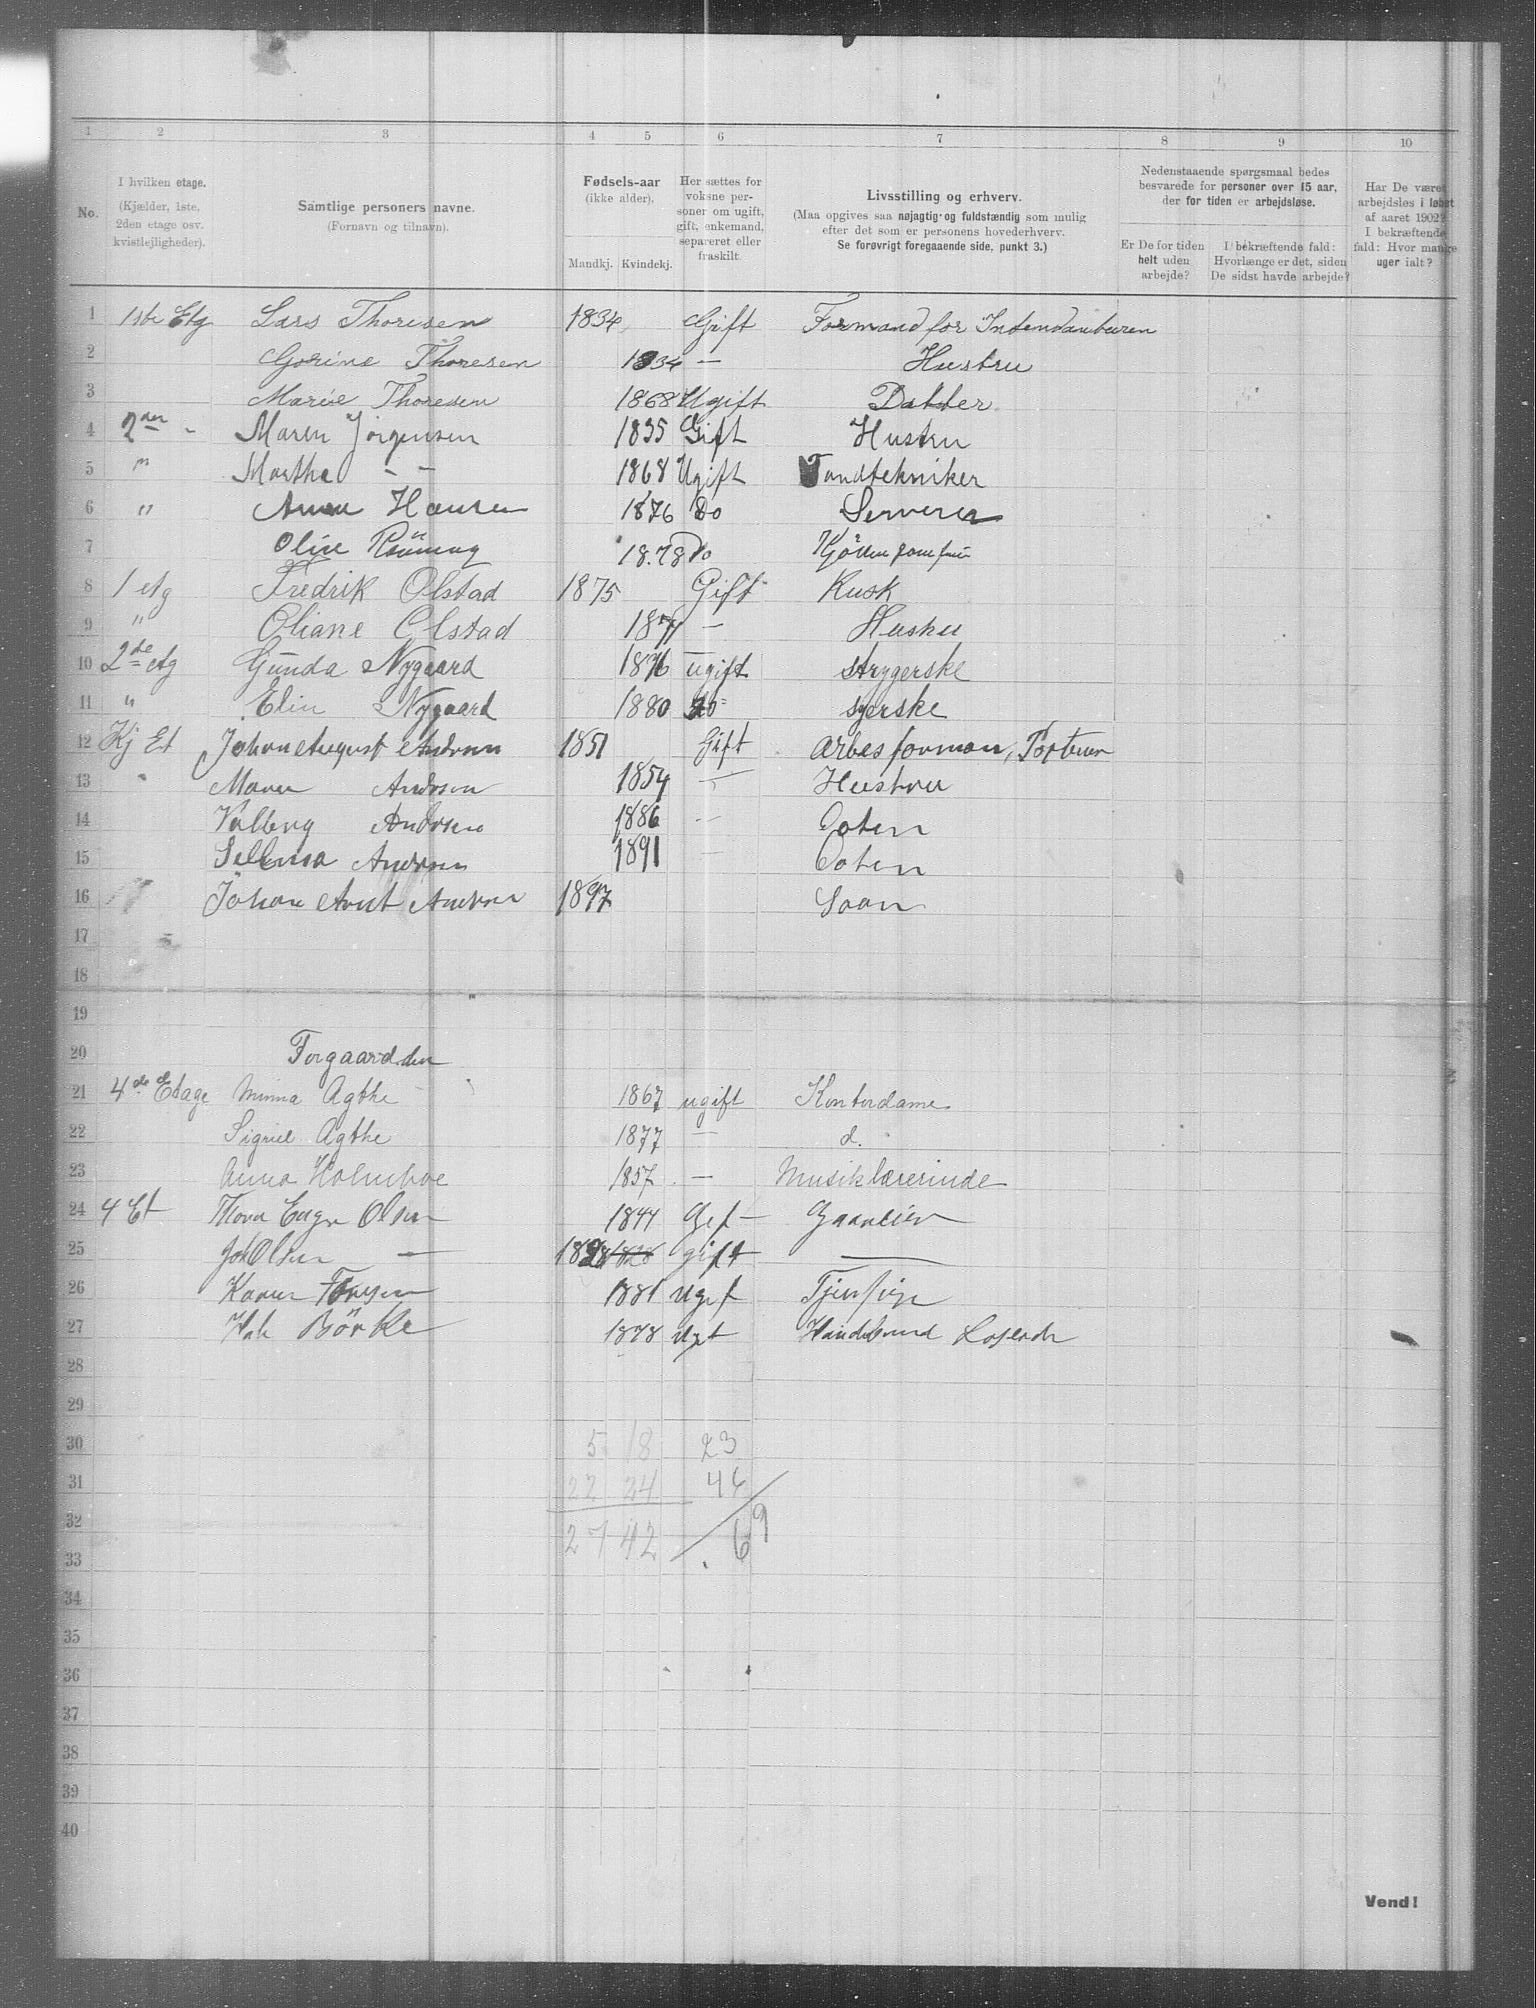 1 2 3 4 5 6 7 8 9 10
No.
I hvilken etage.
(Kjælder, 1ste,
2den etage osv.
kvistlejligheder).
Samtlige personers navne.
(Fornavn og tilnavn).
Fødsels-aar
(ikke alder).
Mandkj. Kvindekj.
Her sættes for
voksne per-
soner om ugift,
gift, enkemand,
separeret eller
fraskilt.
Livsstilling og erhverv.
(Maa opgives saa nøjagtig og fuldstændig som mulig
efter det som er personens hovederhverv.
Se forøvrigt foregaaende side, punkt 3.)
Nedenstaaende spørgsmaal bedes
besvarede for personer over 15 aar,
der for tiden er arbejdsløse.
Er De for tiden
helt uden
arbejde?
I bekræftende fald:
Hvorlænge er det, siden
De sidst havde arbejde?
Har De været
arbejdsløs i løbet
af aaret 1902?
I bekræftende
fald: Hvor mange
uger ialt?
1 1ste Etg Lars Thoresen 1834 Gift Formand for Intendanturen
2 Gorine Thoresen 1834 — Hustru
3 Marie Thoresen 1868 Ugift Datter
4 2den - Maren Jörgensen 1835 Gift Hustru
5 " Marthe - - 1868 Ugift Tandtekniker
6 " Anna Hansen 1876 Do
7 Oline 1878 Do
8 1 etg Fredrik Olstad 1875 Gift Kusk
9 " Oliane Olstad 1877 — Hustru
10 2de etg Gunda Nygaard 1876 ugift strygerske
11 " Elin Nygaard 1880 do syerske
12 Kj Et Johan August Andersen 1851 Gift
13 Maren Andersen 1854 — Hustru
14 Valborg Andersen 1886 — Doter
15 Andersen 1891 — Doter
16 Johan Arnt Andersen 1897 Søon
17
18
19
20 Forgaarden
21 4de Etage Minna Agthe 1867 ugift Kontordame
22 Sigrid Agthe 1877 — d.
23 Anna Holmboe 1857 — Musiklærerinde
24 4 Et Olsen 1844 Gif —
25 Joh Olsen — 1828 1828 gift —
26 Karen 1881 Ugif
27 Börke 1878 Ugt
28
29
30 5 18 23
31 22 24 46
32 27 42 69
33
34
35
36
37
38
39
40
Vend!